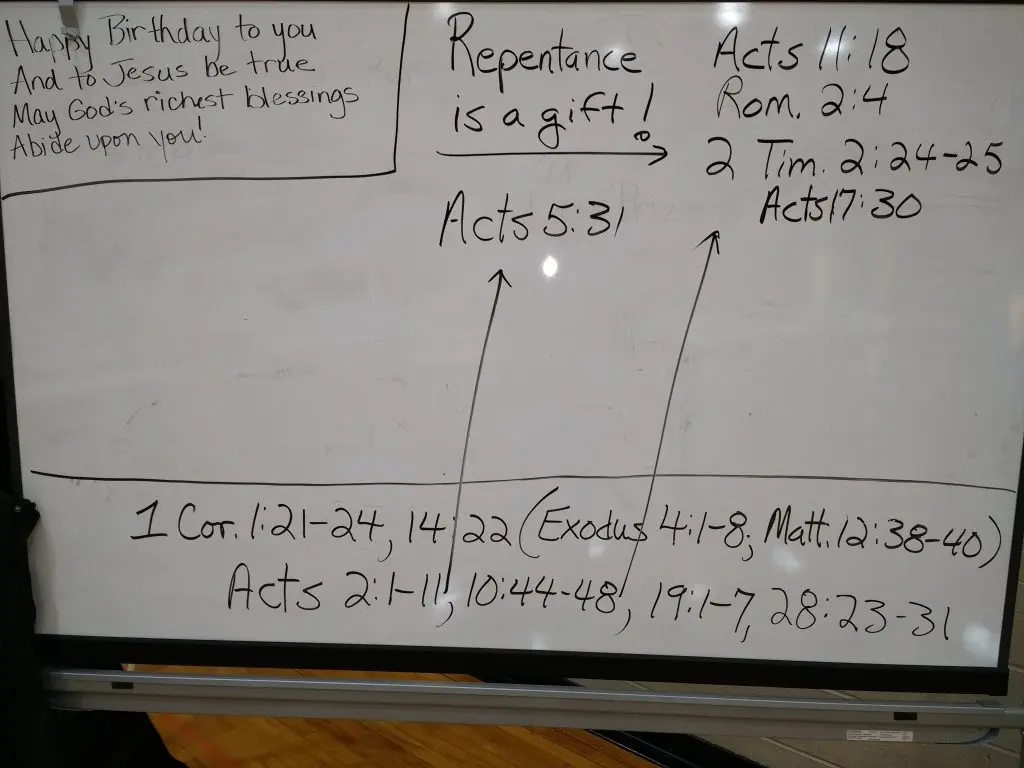 Happy Birthday to you
And to Jesus be true
May God's richest blessings
Abide upon you!
Repentance
is a gift!
Acts 5:31
Acts 11:18
Rom. 2:4
2 Tim. 2:24-25
Acts 17:30
1 Cor. 1:21-24, 14:22 (Exodus 4:1-8; Matt. 12:38-40)
Acts 2:1-11, 10:44-48, 19:1-7, 28:23-31